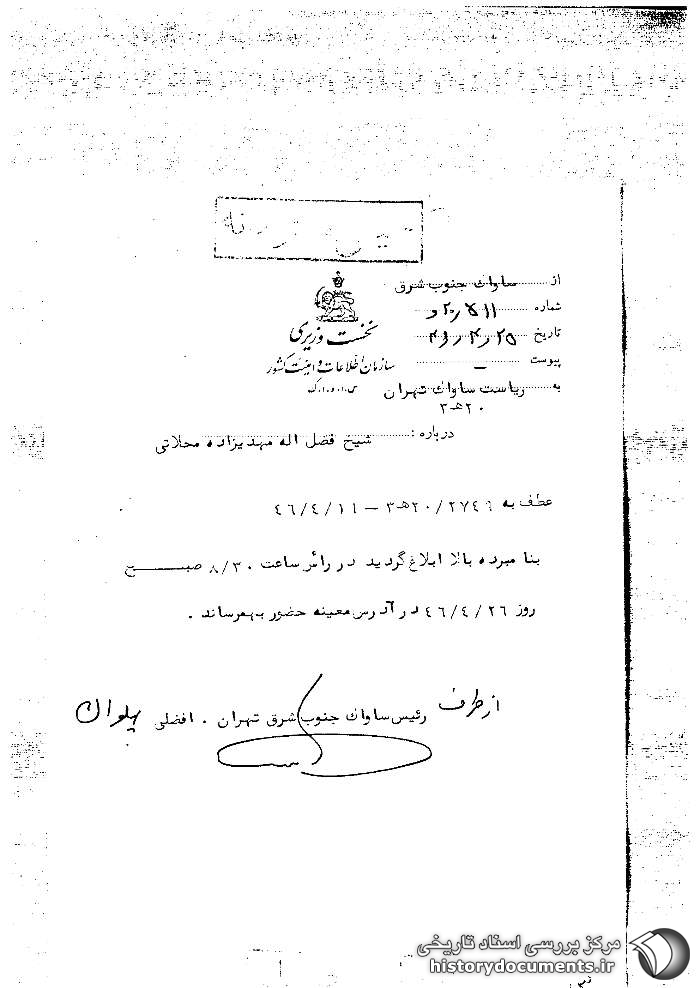 از ساواك جنوب شرق
شماره
تاریخ ۴۶/۴/۲۵
پیوست —
به ریاست ساواك تهران
۲۰ه‍۳
نخست وزیری
سازمان اطلاعات و امنیت کشور
س.ا.و.ا.ک
درباره : شیخ فضل اله مهدیزاده محلاتی
عطف به ۲۰/۲۷۴۶ه‍۳ – ۴۶/۴/۱۱
بنامبرده بالا ابلاغ گردید در رأس ساعت ۸/۳۰ صبح
روز ۴۶/۴/۲۶ در آدرس معینه حضور بهمرساند .
از طرف رئیس ساواك جنوب شرق تهران . افضلی پهلوان
مرکز بررسی اسناد تاریخی
historydocuments.ir